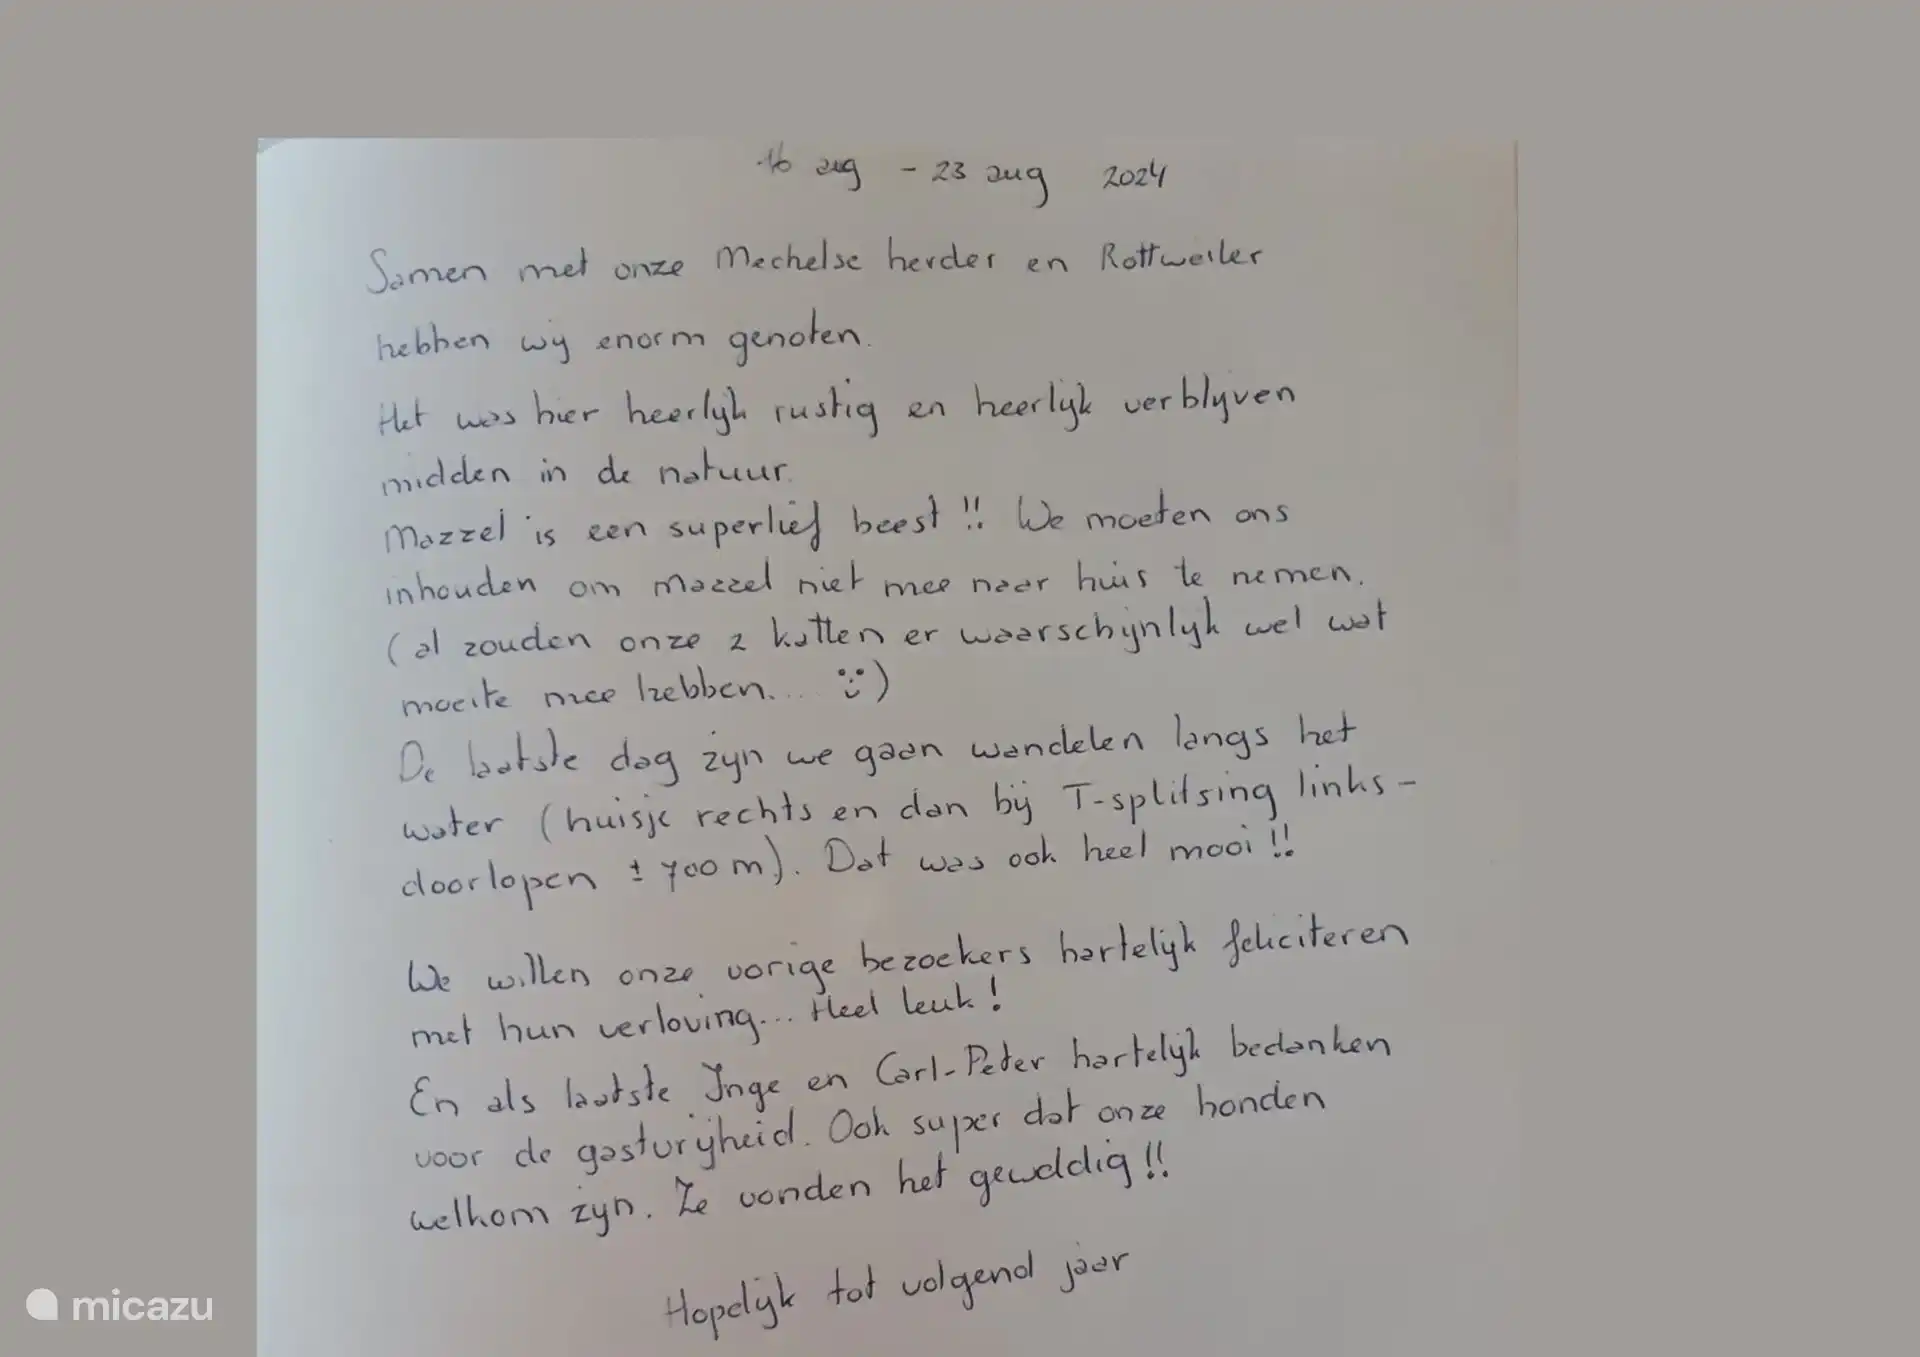 16 aug - 23 aug 2024
Samen met onze Mechelse herder en Rottweiler
hebben wij enorm genoten.
Het was hier heerlijk rustig en heerlijk verblijven
midden in de natuur.
Mazzel is een superlief beest!! We moeten ons
inhouden om Mazzel niet mee naar huis te nemen.
(al zouden onze 2 katten er waarschijnlijk wel wat
moeite mee hebben.... :))
De laatste dag zijn we gaan wandelen langs het
water (huisje rechts en dan bij T-splitsing links -
doorlopen ± 700 m). Dat was ook heel mooi!!
We willen onze vorige bezoekers hartelijk feliciteren
met hun verloving... Heel leuk!
En als laatste Inge en Carl-Peter hartelijk bedanken
voor de gastvrijheid. Ook super dat onze honden
welkom zijn. Ze vonden het geweldig!!
Hopelijk tot volgend jaar
micazu